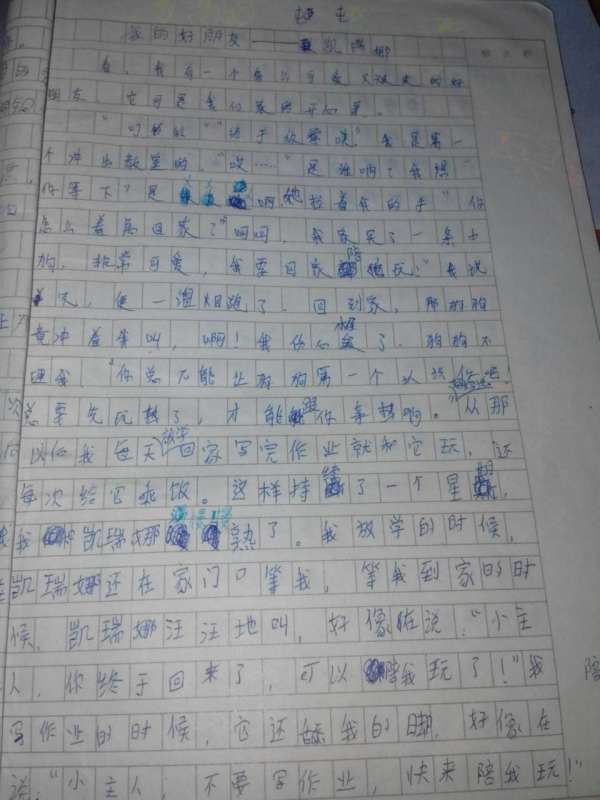 我的好朋友——凯瑞娜
看,我有一个 可爱又 的好
朋友,它可是我们家的开心果。
"叮铃铃""终于放学咯"我是第一
个冲出教室的,"哎……"是谁啊?我想
你等下"是 啊,她拉着我的手"你
怎么着急回家了"呵呵,我家买了一条小
狗,非常可爱,我要回家陪它玩!"我说
完,便一溜烟跑了。回到家,那狗狗
竟冲着我叫,啊!我伤心 了,狗狗不
理我,"你总不能让狗狗第一个认识你吧!
总要先玩熟了,才能跟你亲热啊。"从那
以后我每天放学回家写完作业就和它玩,还
每次给它乘饭。这样持续了一个星期,
我 凯瑞娜 熟了。我放学的时候,
凯瑞娜还在家门口等我,等我到家的时
候,凯瑞娜汪汪地叫,好像在说:"小主
人,你终于回来了,可以陪我玩了!"我
陪
写作业的时候,它还舔我的脚,好像在
说:"小主人,不要写作业,快来陪我玩!"